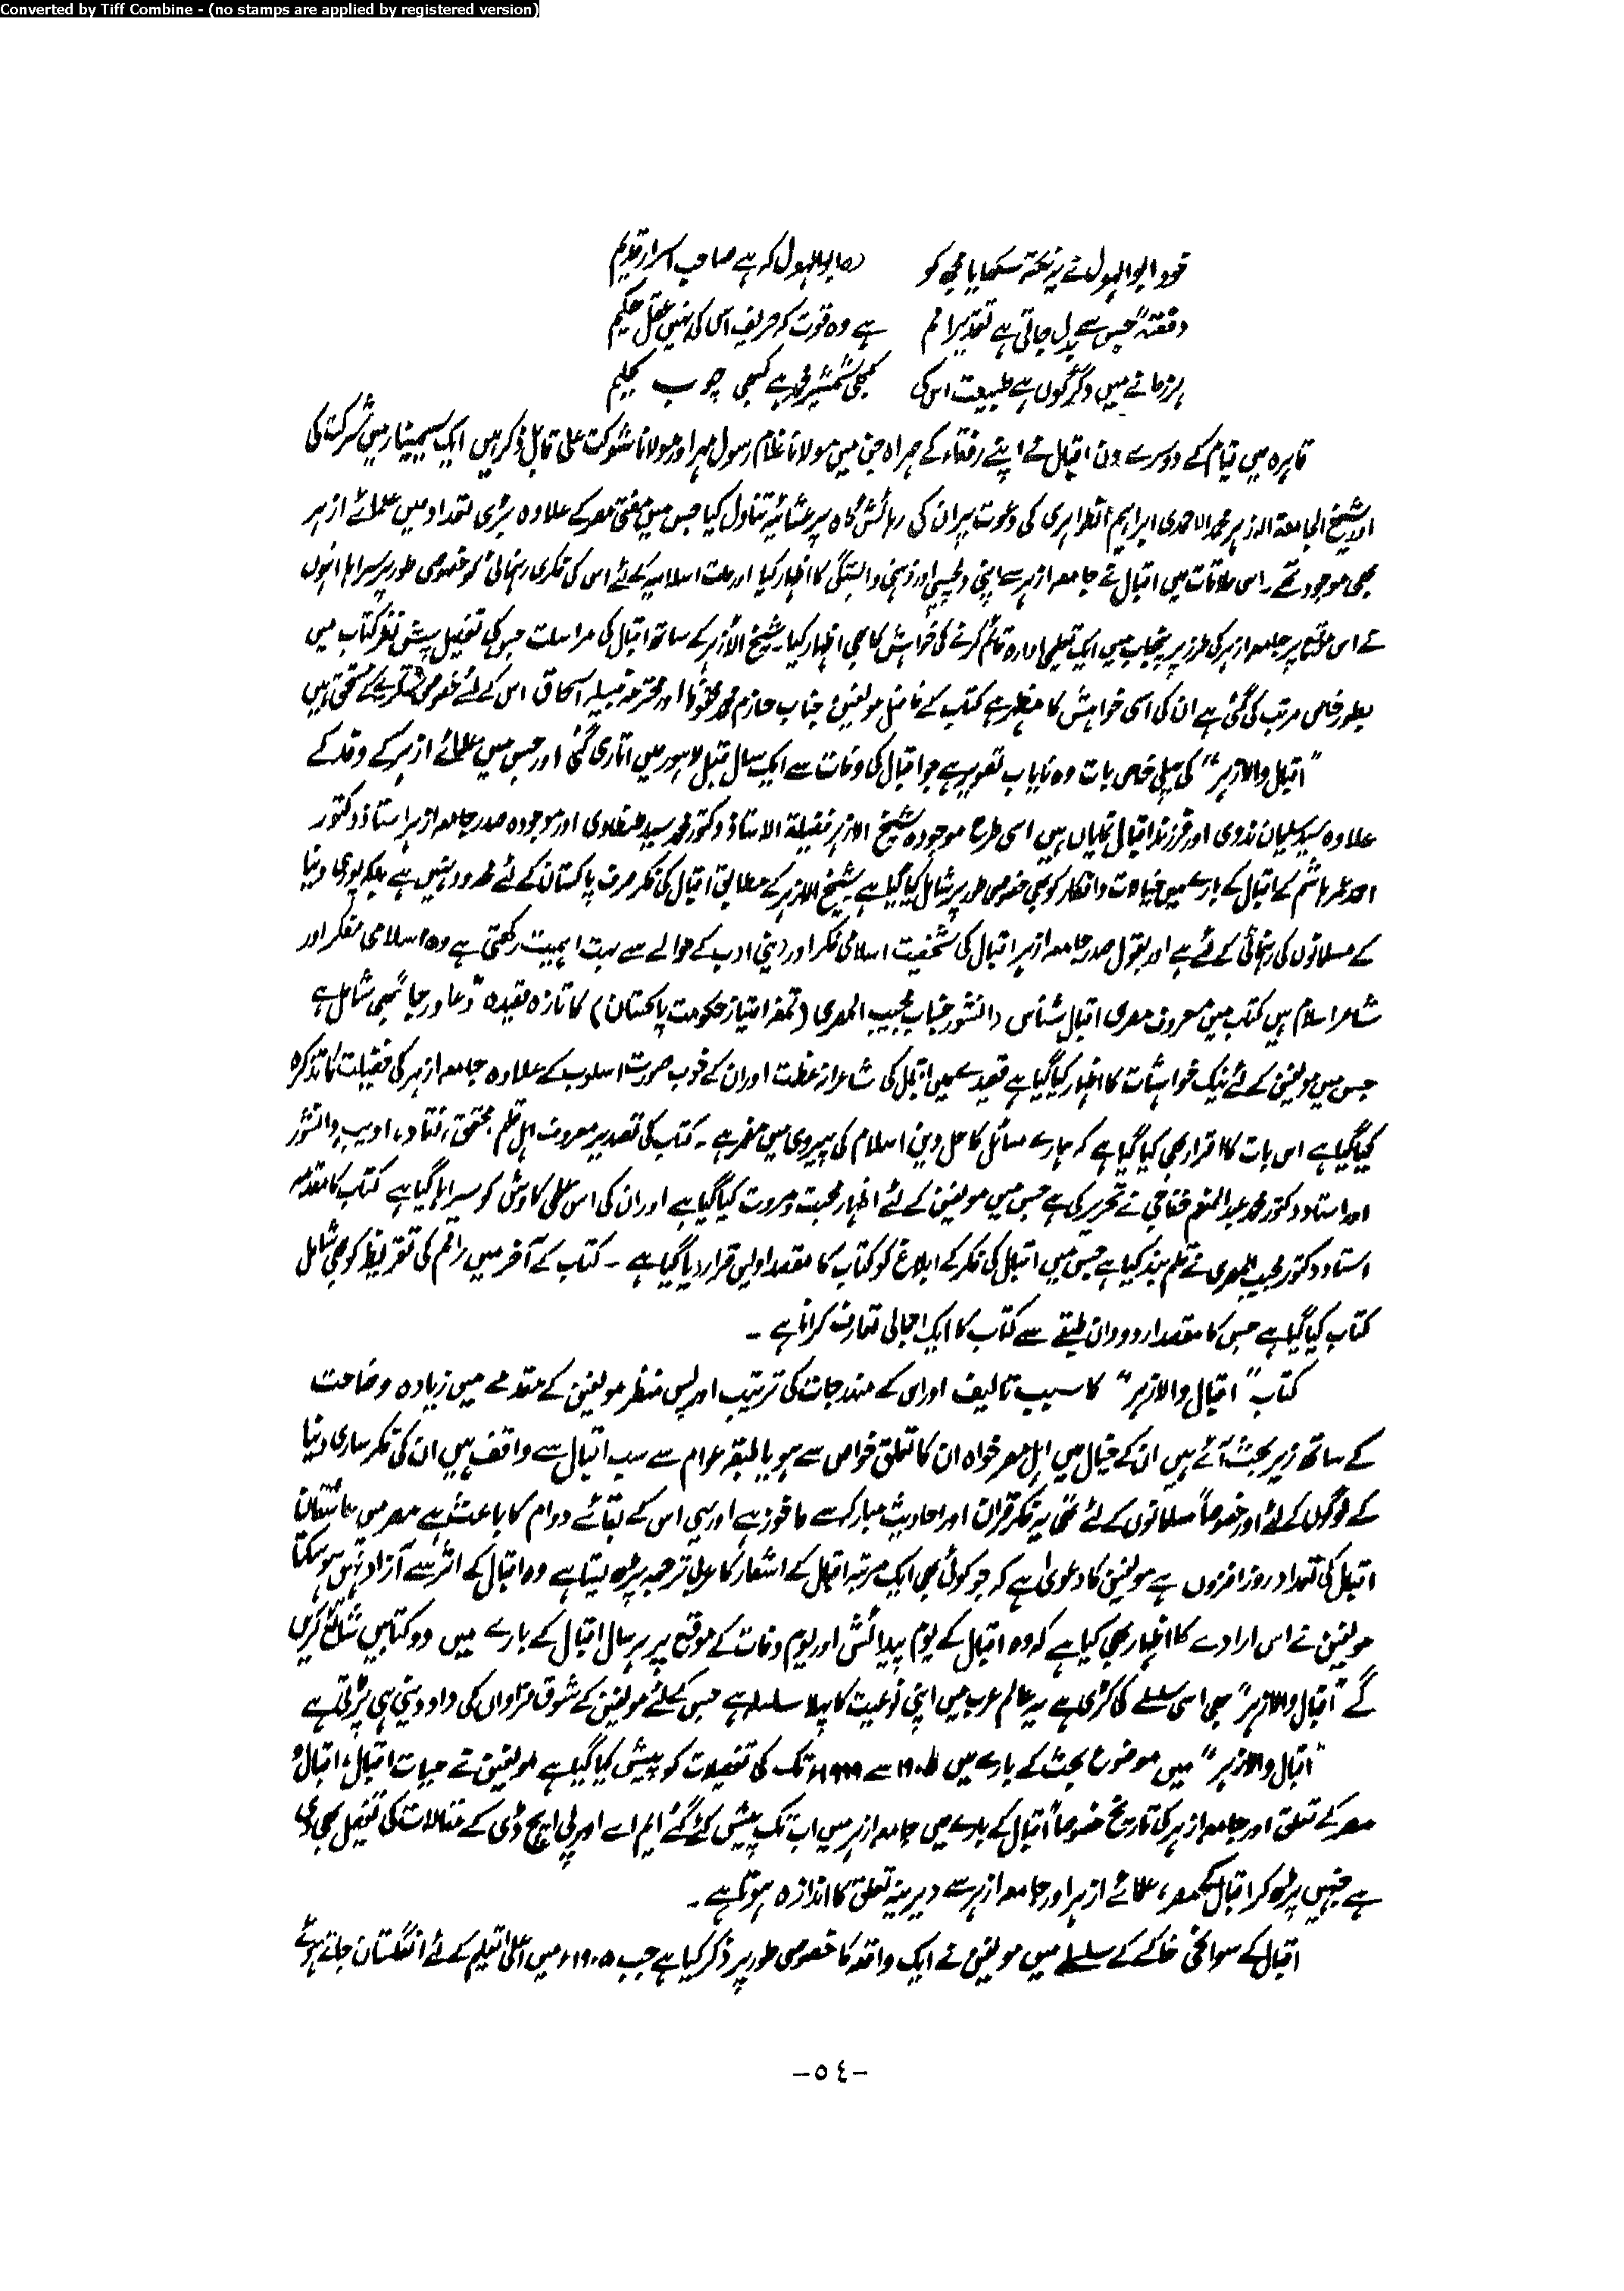 Converted by Tiff Combine - (no stamps are applied by registered version)
خود ابوالہول نے یہ نکتہ سکھایا مجھ کو وہ ابوالہول کہ ہے صاحب اسرار قدیم
دفعتہً جس سے بدل جاتی ہے تقدیر امم ہے وہ قوت کہ حریف اس کی نہیں عقل حکیم
ہر زمانے میں دگر گوں ہے طبیعت اس کی کبھی شمشیر محمد ہے کبھی چوب کلیم
قاہرہ میں قیام کے دوسرے دن اقبال نے اپنے رفقاء کے ہمراہ جن میں مولانا غلام رسول مہر اور مولانا شوکت علی قابل ذکر ہیں ایک سیمینار میں شرکت کی
اور شیخ الجامعۃ الازہر محمد الاحمدی ابراہیم الظواہری کی دعوت پر ان کی رہائش گاہ پر عشائیہ تناول کیا جس میں مفتی مصر کے علاوہ بڑی تعداد میں علمائے ازہر
بھی موجود تھے۔ اس ملاقات میں اقبال نے جامعہ ازہر سے اپنی دلچسپی اور ذہنی وابستگی کا اظہار کیا اور ملت اسلامیہ کے لئے اس کی فکری رہنمائی کو خصوصی طور پر سراہا انہوں
نے اس موقع پر جامعہ ازہر کی طرز پر پنجاب میں ایک تعلیمی ادارہ قائم کرنے کی خواہش کا بھی اظہار کیا۔ شیخ الازہر کے ساتھ اقبال کی مراسلت جس کی تفصیل پیش نظر کتاب میں
بطور خاص مرتب کی گئی ہے ان کی اسی خواہش کا مظہر ہے کتاب کے فاضل مولفین جناب حازم محمد محفوظ اور محترمہ نبیلہ اسحاق اس کے لئے خصوصی شکریے کے مستحق ہیں
"اقبال والازہر" کی پہلی خاص بات وہ نایاب تصویر ہے جو اقبال کی وفات سے ایک سال قبل لاہور میں اتاری گئی اور جس میں علمائے ازہر کے وفد کے
علاوہ سید سلیمان ندوی اور فرزند اقبال نمایاں ہیں اسی طرح موجودہ شیخ الازہر فضیلۃ الاستاذ دکتور محمد سید طنطاوی اور موجودہ صدر جامعہ ازہر استاذ دکتور
احمد عمر ہاشم کے اقبال کے بارے میں خیالات و افکار کو بھی خصوصی طور پر شامل کیا گیا ہے شیخ الازہر کے مطابق اقبال کی فکر صرف پاکستان کے لئے محدود نہیں ہے بلکہ پوری دنیا
کے مسلمانوں کی رہنمائی کے لئے ہے اور بقول صدر جامعہ ازہر اقبال کی شخصیت اسلامی فکر اور دینی ادب کے حوالے سے بہت اہمیت رکھتی ہے وہ اسلامی مفکر اور
شاعر اسلام ہیں کتاب میں معروف مصری اقبال شناس دانشور جناب مجیب المصری (تمغہ امتیاز حکومت پاکستان) کا تازہ قصیدہ "دعا و رجا" بھی شامل ہے
جس میں مولفین کے لئے نیک خواہشات کا اظہار کیا گیا ہے قصیدے میں اقبال کی شاعرانہ عظمت اور ان کے خوب صورت اسلوب کے علاوہ جامعہ ازہر کی فضیلت کا تذکرہ
کیا گیا ہے اس بات کا اقرار بھی کیا گیا ہے کہ ہمارے مسائل کا حل دین اسلام کی پیروی میں مضمر ہے۔ کتاب کی تصدیر معروف اہل قلم، محقق، نقاد، ادیب، دانشور
اور استاد دکتور محمد عبدالمنعم خفاجی نے تحریر کی ہے جس میں مولفین کے لئے اظہار محبت و مروت کیا گیا ہے اور ان کی اس علمی کاوش کو سراہا گیا ہے کتاب کا مقدمہ
استاد دکتور مجیب المصری نے قلم بند کیا ہے جس میں اقبال کی فکر کے ابلاغ کو کتاب کا مقصد اولین قرار دیا گیا ہے۔ کتاب کے آخر میں راقم کی تقریظ کو بھی شامل
کتاب کیا گیا ہے جس کا مقصد اردو دان طبقے سے کتاب کا ایک اجمالی تعارف کرانا ہے۔
کتاب "اقبال والازہر" کا سبب تالیف اور اس کے مندرجات کی ترتیب اور پس منظر مولفین کے مقدمے میں زیادہ وضاحت
کے ساتھ زیر بحث آئے ہیں ان کے خیال میں اہل مصر خواہ ان کا تعلق خواص سے ہو یا طبقہ عوام سے سب اقبال سے واقف ہیں ان کی فکر ساری دنیا
کے لوگوں کے لئے اور خصوصاً مسلمانوں کے لئے تھی یہ فکر قرآن اور احادیث مبارکہ سے ماخوذ ہے اور یہی اس کے بقائے دوام کا باعث ہے مصر میں عاشقان
اقبال کی تعداد روز افزوں ہے مولفین کا دعویٰ ہے کہ جو کوئی بھی ایک مرتبہ اقبال کے اشعار کا عربی ترجمہ پڑھ لیتا ہے وہ اقبال کے اثر سے آزاد نہیں ہو سکتا
مولفین نے اس ارادے کا اظہار بھی کیا ہے کہ وہ اقبال کے یوم پیدائش اور یوم وفات کے موقع پر ہر سال اقبال کے بارے میں دو کتابیں شائع کریں
گے "اقبال والازہر" بھی اسی سلسلے کی کڑی ہے یہ عالم عرب میں اپنی نوعیت کا پہلا سلسلہ ہے جس کے لئے مولفین کے شوق فراواں کی داد دینی ہی پڑتی ہے
"اقبال والازہر" میں موضوع بحث کے بارے میں ۱۹۰۵ء سے ۱۹۹۹ء تک کی تفصیلات کو پیش کیا گیا ہے مولفین نے حیات اقبال، اقبال و
مصر کے تعلق اور جامعہ ازہر کی تاریخ خصوصاً اقبال کے بارے میں جامعہ ازہر میں اب تک پیش کئے گئے ایم اے اور پی ایچ ڈی کے مقالات کی تفصیل بھی دی
ہے جنہیں پڑھ کر اقبال کے مصر، علمائے ازہر اور جامعہ ازہر سے دیرینہ تعلق کا اندازہ ہوتا ہے۔
اقبال کے سوانحی خاکے کے سلسلے میں مولفین نے ایک واقعہ کا خصوصی طور پر ذکر کیا ہے جب ۱۹۰۵ء میں اعلیٰ تعلیم کے لئے انگلستان جاتے ہوئے
-٥٤-